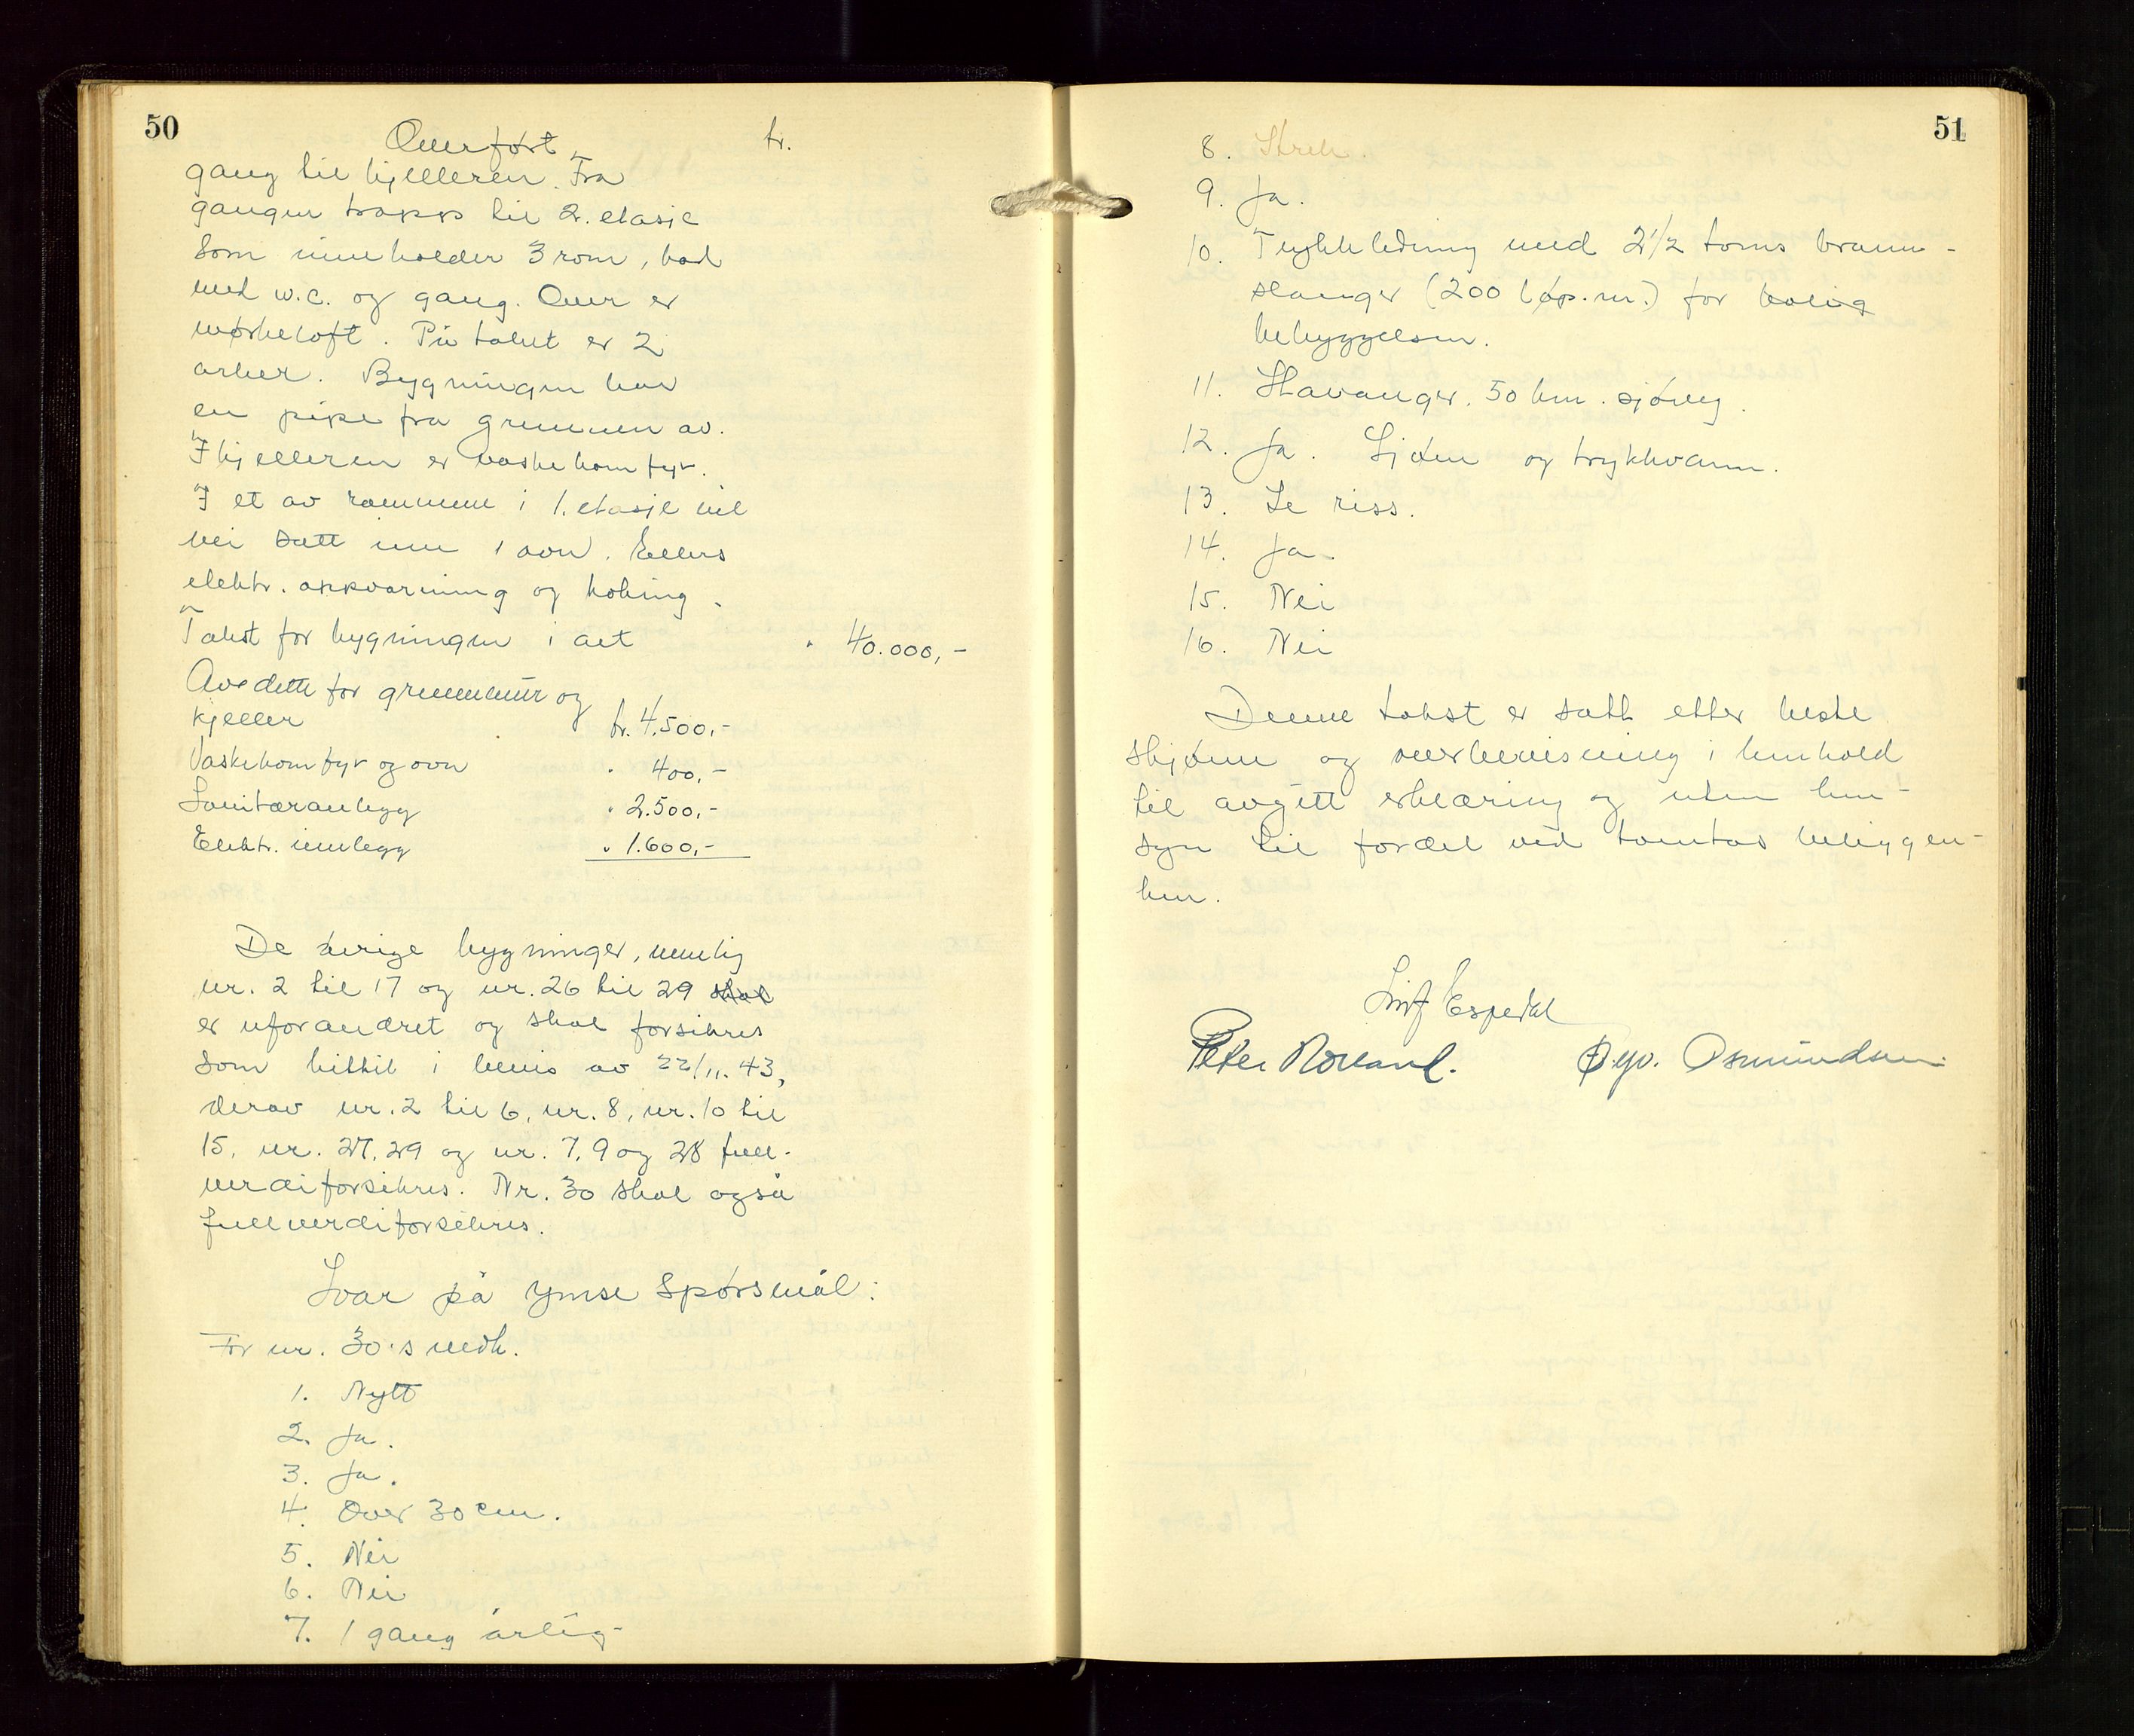 50
Overført kr.
gang til kjelleren. Fra
gangen trapp til 2. etasje
som inneholder 3 rom, bad
med w.c. og gang. Over er
mørkeloft. På taket er 2
arker. Bygningen har
en pipe fra grunnen av.
I kjelleren er vaskekomfyr.
I et av rommene i 1. etasje vil
bli satt inn 1 ovn. Ellers
elektr. oppvarming og koking.
Takst for bygningen i alt " 40.000,-
Av dette for grunnmur og
kjeller kr. 4.500,-
Vaskekomfyr og ovn " 400,-
Sanitæranlegg " 2.500,-
Elektr. innlegg " 1.600,-
De øvrige bygninger, nemlig
nr. 2 til 17 og nr. 26 til 29 skal
er uforandret og skal forsikres
som hittil i bevis av 22/11. 43,
derav nr. 2 til 6, nr. 8, nr. 10 til
15, nr. 27, 29 og nr. 7, 9 og 28 full-
verdiforsikres. Nr. 30 skal også
fullverdiforsikres.
Svar på ymse spørsmål:
For nr. 30's vedk.
1. Nytt
2. Ja.
3. Ja.
4. Over 30 cm.
5. Nei
6. Nei
7. 1 gang årlig
51
8. Strek.
9. Ja.
10. Trykkledning med 2 1/2 toms brann-
slanger (200 løp. m.) for bolig
bebyggelsen.
11. Stavanger. 50 km. sjøvej.
12. Ja. Sjøen og trykkvann.
13. Se riss.
14. Ja.
15. Nei
16. Nei
Denne takst er satt etter beste
skjønn og overbevisning i henhold
til avgitt erklæring og uten hen-
syn til fordel ved tomtas beliggen-
het.
Leif Espedal
Peter Rolland. Øyv. Osmundsen